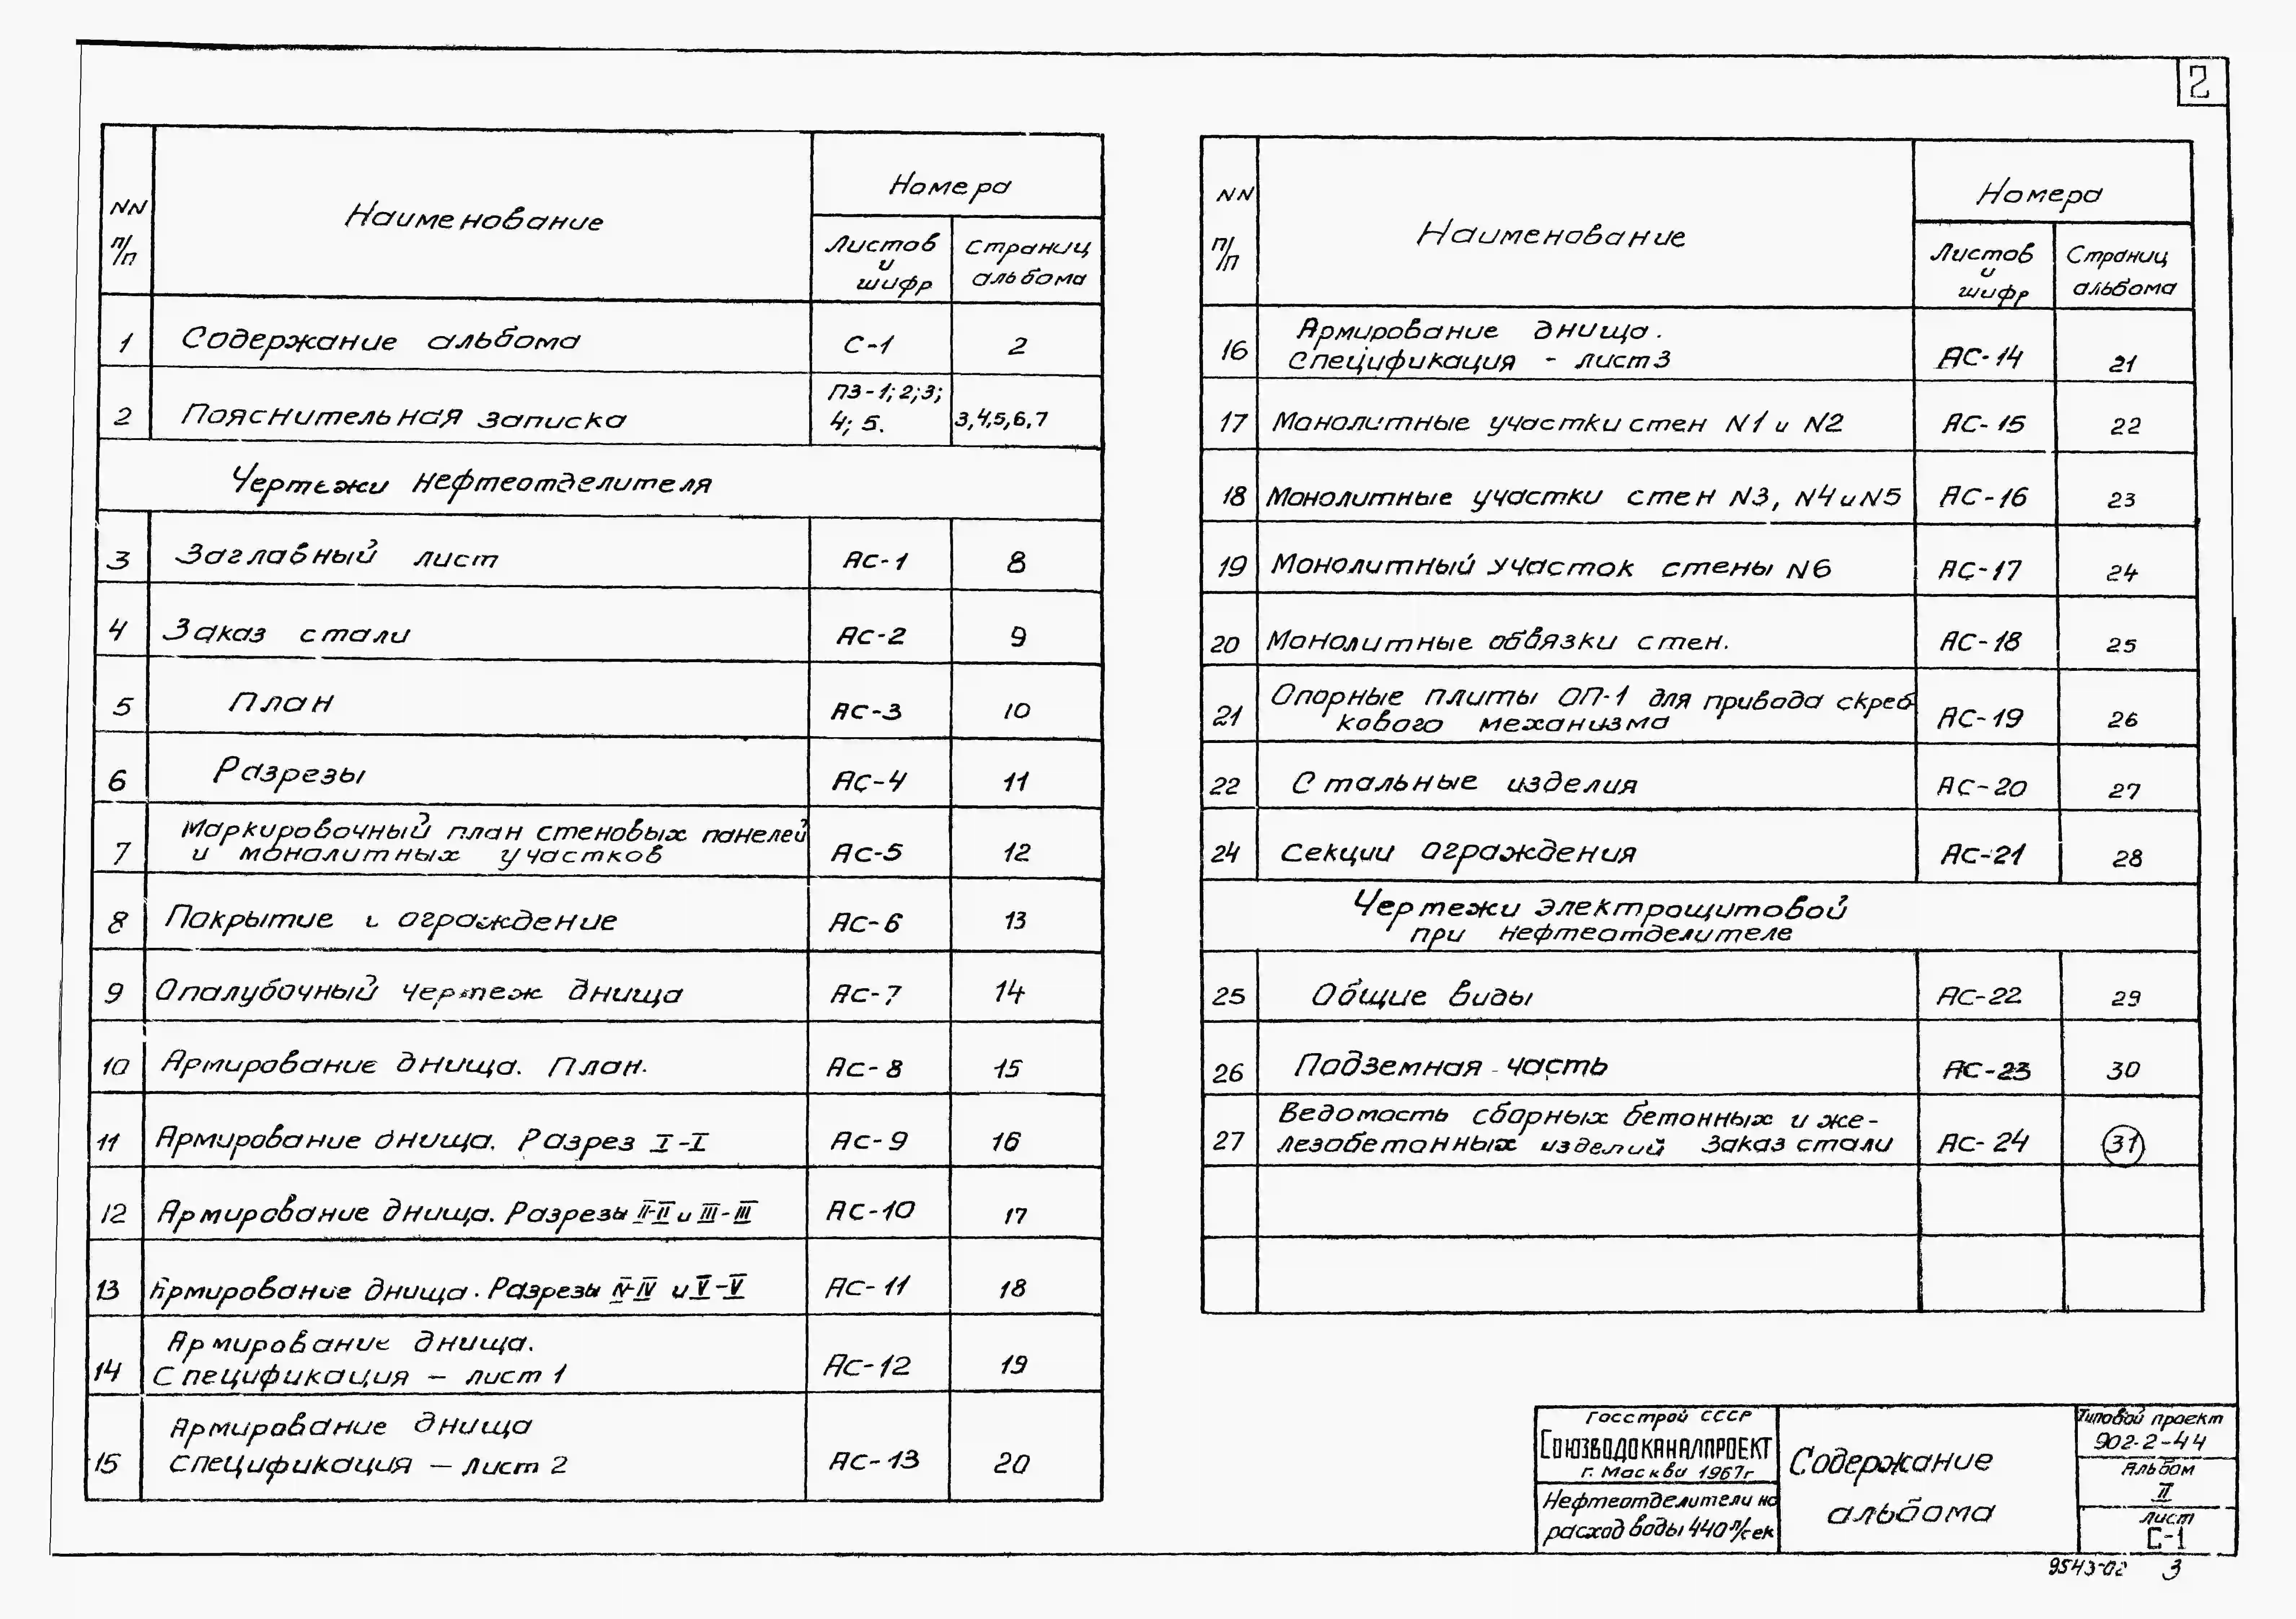 2
NN п/п Наименование Номера
Листов и шифр Страниц альбома
1 Содержание альбома С-1 2
2 Пояснительная записка ПЗ-1; 2; 3; 4; 5. 3,4,5,6,7
Чертежи нефтеотделителя
3 Заглавный лист АС-1 8
4 Заказ стали АС-2 9
5 План АС-3 10
6 Разрезы АС-4 11
7 Маркировочный план стеновых панелей
и монолитных участков АС-5 12
8 Покрытие и ограждение АС-6 13
9 Опалубочный чертеж днища АС-7 14
10 Армирование днища. План. АС-8 15
11 Армирование днища. Разрез I-I АС-9 16
12 Армирование днища. Разрезы II-II и III-III АС-10 17
13 Армирование днища. Разрезы IV-IV и V-V АС-11 18
14 Армирование днища.
Спецификация – лист 1 АС-12 19
15 Армирование днища
Спецификация – лист 2 АС-13 20
NN п/п Наименование Номера
Листов и шифр Страниц альбома
16 Армирование днища.
Спецификация - лист 3 АС-14 21
17 Монолитные участки стен N1 и N2 АС-15 22
18 Монолитные участки стен N3, N4 и N5 АС-16 23
19 Монолитный участок стены N6 АС-17 24
20 Монолитные обвязки стен. АС-18 25
21 Опорные плиты ОП-1 для привода скреб-
кового механизма АС-19 26
22 Стальные изделия АС-20 27
24 Секции ограждения АС-21 28
Чертежи электрощитовой
при нефтеотделителе
25 Общие виды АС-22 29
26 Подземная часть АС-23 30
27 Ведомость сборных бетонных и же-
лезобетонных изделий Заказ стали АС-24 31
Госстрой СССР
Союзводоканалпроект
г. Москва 1967г
Нефтеотделители на
расход воды 440 л/сек
Содержание
альбома
Типовой проект
902-2-44
Альбом
II
Лист
С-1
9543-02 3